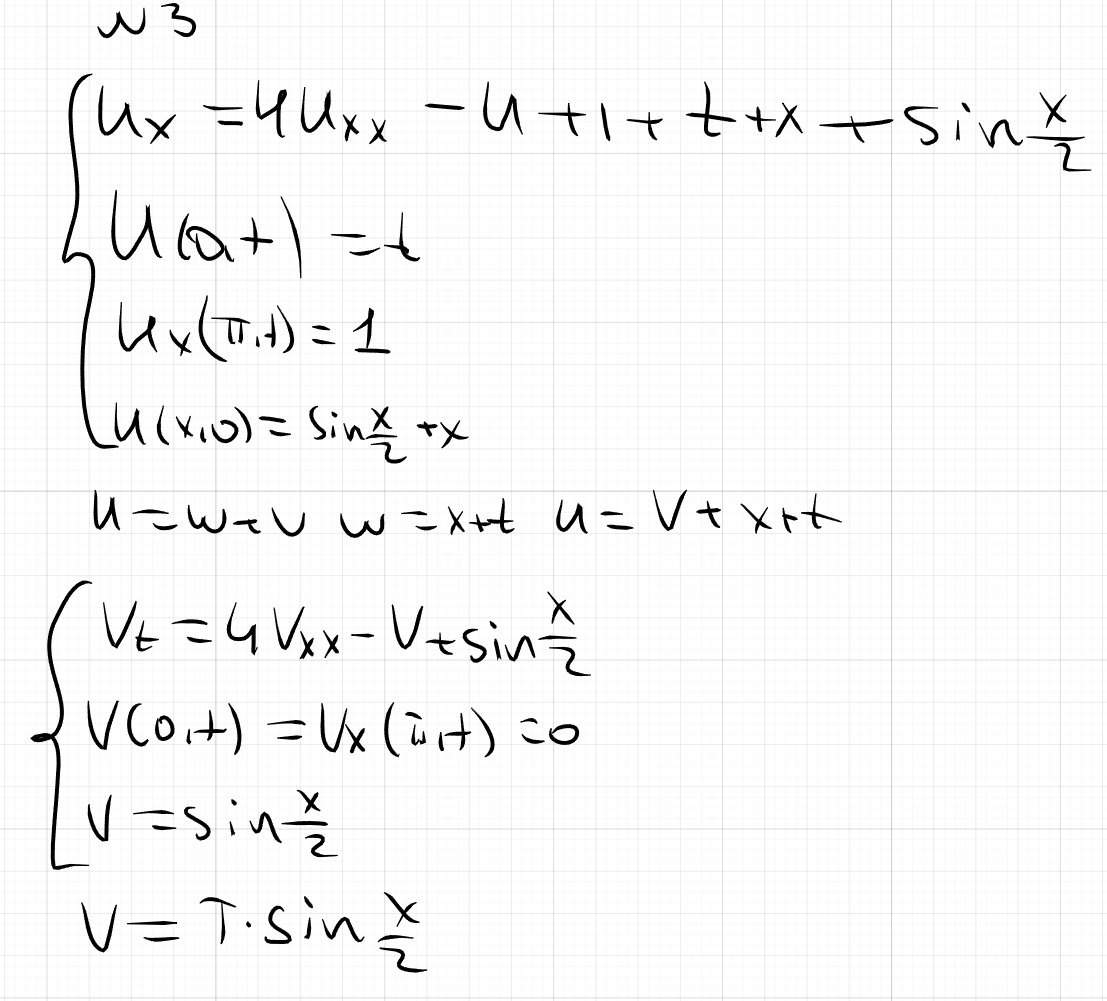 N3
u_x = 4u_xx - u + 1 + t + x + sin x/2
u(0,t) = t
u_x(π,t) = 1
u(x,0) = sin x/2 + x
u = w + v w = x+t u = v + x+t
v_t = 4v_xx - v + sin x/2
v(0,t) = v_x(π,t) = 0
v = sin x/2
v = T · sin x/2